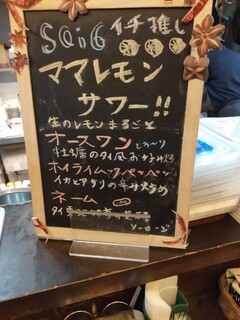 SOi6 イチ推し
ママレモン
サワー!!
生のレモンまるごと
オースワン
牡蠣のタイ風お好み焼
ホイライムックパッペッ
イカとアサリの辛炒め
ネーム
タイ
ソーセージ